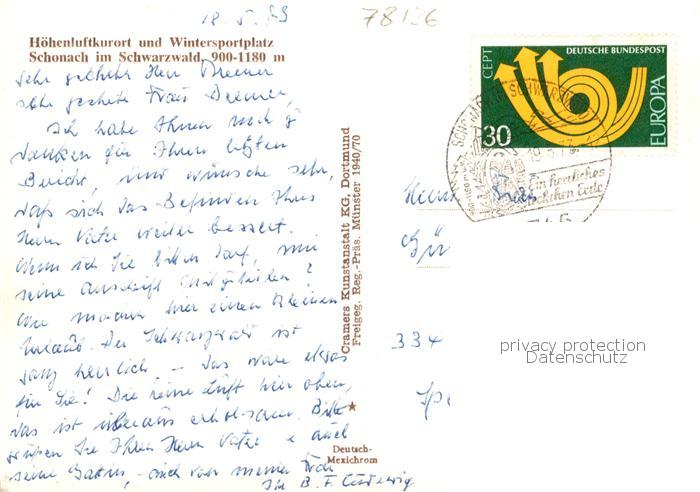 18. 5. 73
78136
Höhenluftkurort und Wintersportplatz
Schonach im Schwarzwald, 900-1180 m
Sehr geehrter Herr Dremer
sehr geehrte Frau Dremer,
Ich habe Ihnen noch z
danken für Ihren letzten
Bericht, und wünsche sehr,
daß sich das Befinden Ihres
Herrn Vater weiter bessert.
Wenn ich Sie bitten darf, mir
seine Anschrift mitzuteilen?
Wir machen hier einen kleinen
Urlaub. Der Schwarzwald ist
ganz herrlich. - Das wäre etwas
für Sie! Die reine Luft hier oben,
das ist überaus erholsam. Bitte
grüßen Sie Ihren Herrn Vater u auch
seine Gattin, - auch von meiner Frau
Ihr B. F. Ludewig
Cramers Kunstanstalt KG, Dortmund
Freigeg. Reg.-Präs. Münster 1940/70
Deutsch-
Mexichrom
CEPT
DEUTSCHE BUNDESPOST
EUROPA
30
SCHWARZWALD
Ein herrliches
Herrn
334
privacy protection
Datenschutz